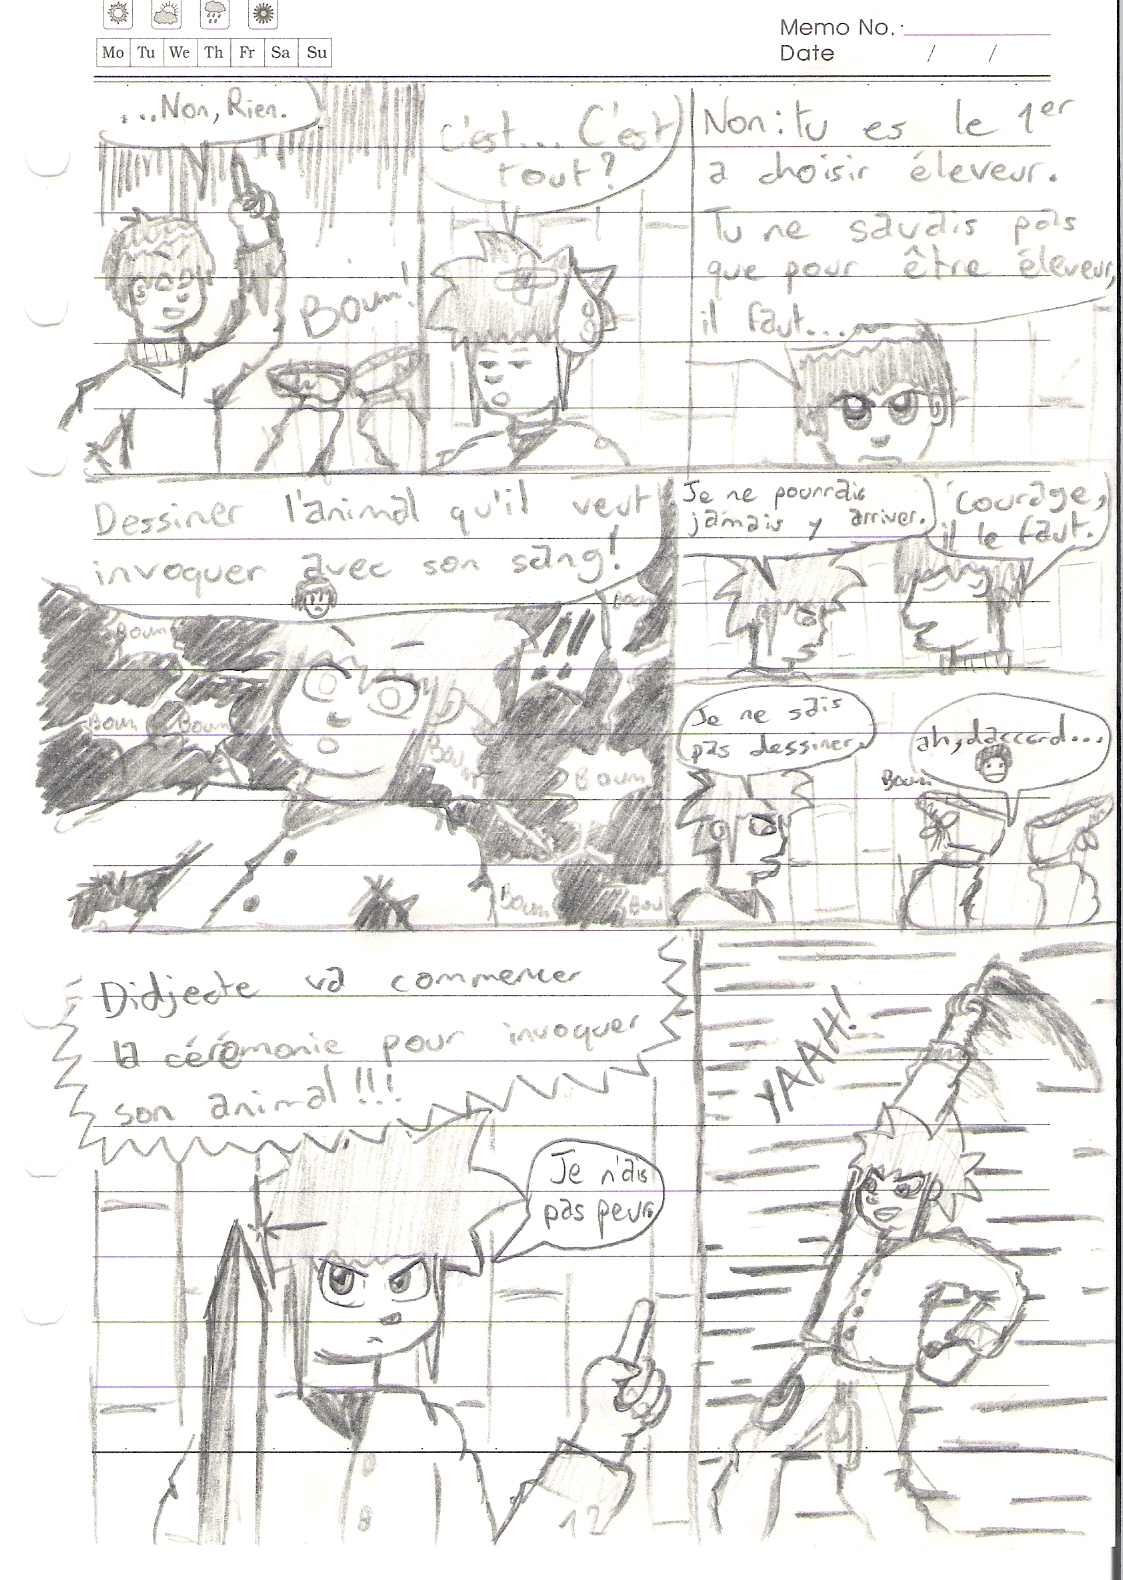 Memo No.:
Date / /
Mo Tu We Th Fr Sa Su
...Non, Rien.
Boum!
C'est... C'est
tout?
Non: tu es le 1er
a choisir éleveur.
Tu ne savais pas
que pour être éleveur,
il faut...
Dessiner l'animal qu'il veut
invoquer avec son sang!
Boum
Boum
Boum
Boum
Boum
Boum
Boum
Bou
!!
Je ne pourrais
jamais y arriver.
Courage,
il le faut.
Je ne sais
pas dessiner.
ah, d'accord...
Boum
Didjecte va commencer
la cérémonie pour invoquer
son animal!!!
Je n'ais
pas peur.
YAAH!
12